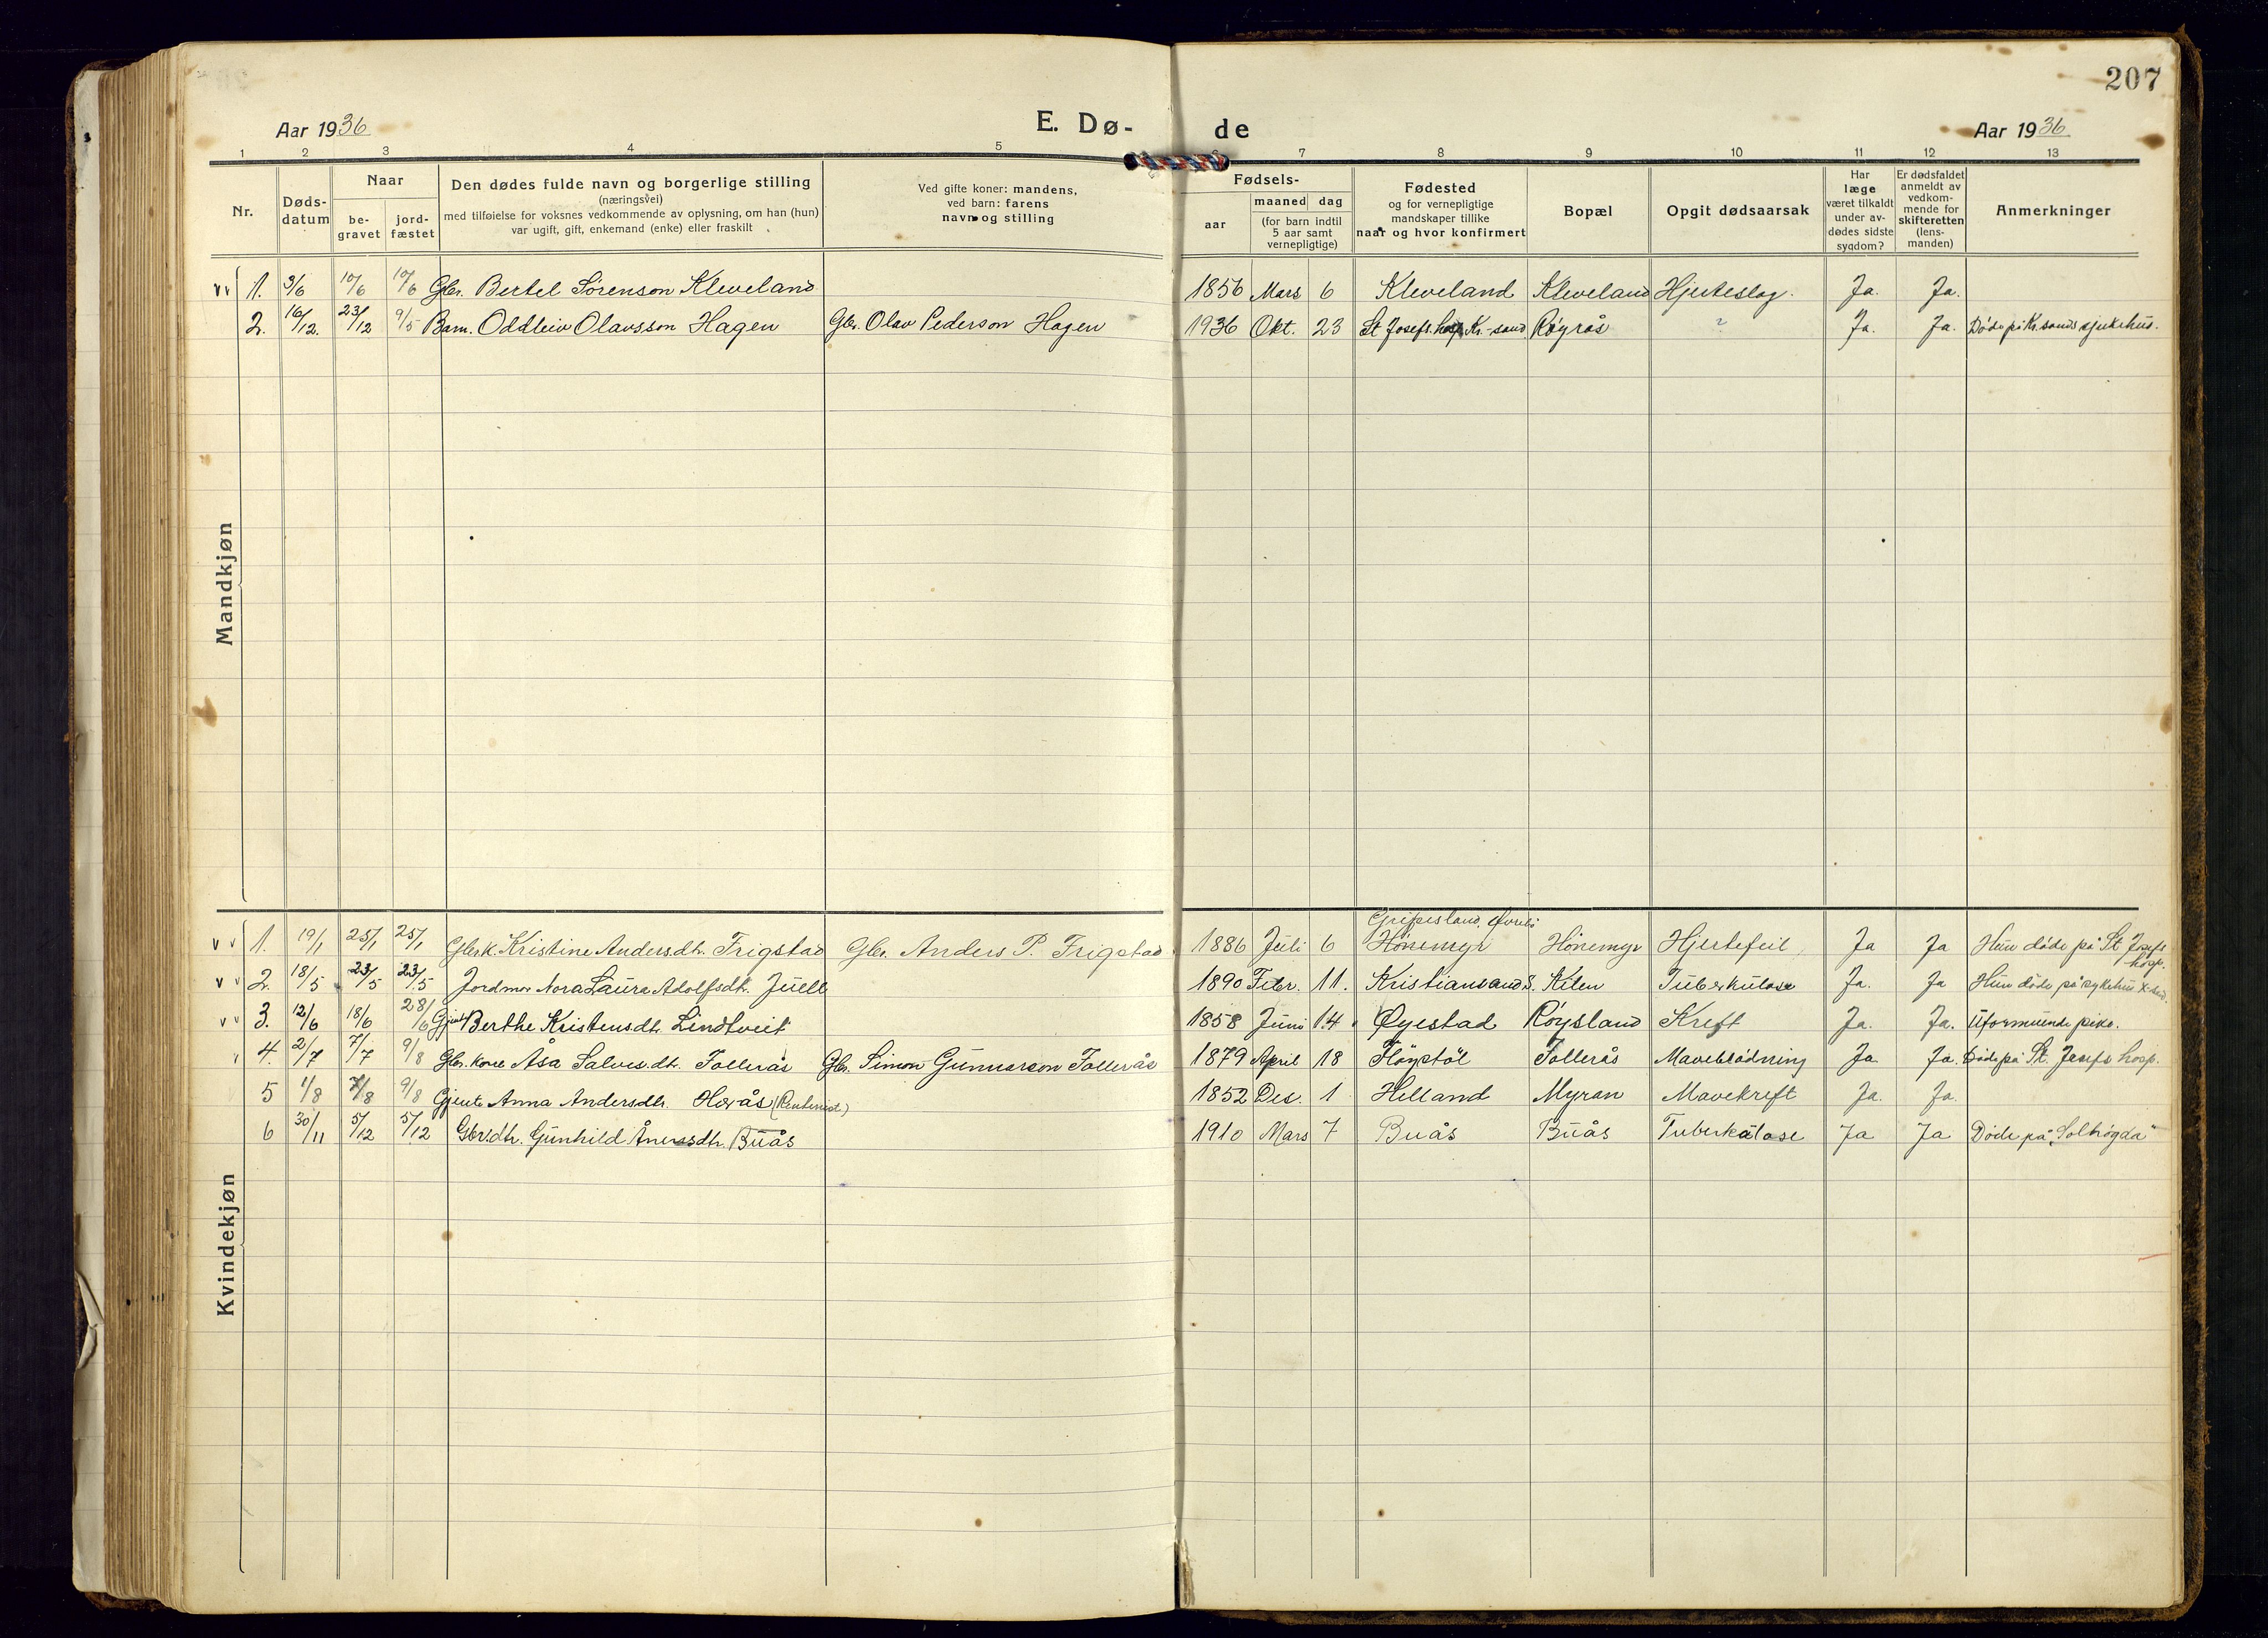 207
Aar 1936 E. Dø- de Aar 1936
1 2 3 4 5 6 7 8 9 10 11 12 13
Nr. Døds-datum Naar be-gravet jord-fæstet Den dødes fulde navn og borgerlige stilling (næringsvei) med tilføielse for voksnes vedkommende av oplysning, om han (hun) var ugift, gift, enkemand (enke) eller fraskilt Ved gifte koner: mandens, ved barn: farens navn og stilling Fødsels- aar maaned dag (for barn indtil 5 aar samt vernepligtige) Fødested og for vernepligtige mandskaper tillike naar og hvor konfirmert Bopæl Opgit dødsaarsak Har læge været tilkaldt under av-dødes sidste sygdom? Er dødsfaldet anmeldt av vedkom-mende for skifteretten (lens-manden) Anmerkninger
Mandkjøn
1. 3/6 10/6 10/6 Gbr. Bertel Sørenson Kleveland 1856 Mars 6 Kleveland Kleveland Hjerteslag. Ja. Ja.
2. 16/12. 23/12 9/5 Barn. Oddleiv Olavsson Hagen Gbr. Olav Pederson Hagen 1936 Okt. 23 St Josefs. hosp. Kr.-sand Røyrås ? Ja. Ja. Døde på Kr.sands sjukehus.
Kvindekjøn
Gripesland,
1. 19/1 25/1 25/1 Gbr.k. Kristine Andersdtr. Frigstad Gbr. Anders P. Frigstad 1886 Juli 6 Hønemyr Hønemyr Hjertefeil Ja Ja Hun døde på St. Josefs hosp.
2. 18/5 23/5 23/5 Jordmor Nora Laura Adolfsdtr. Juell 1890 Febr. 11. Kristiansand S. Kilen Tuberkulose Ja. Ja Hun døde på sykehus K-sand.
3. 12/6 18/6 28/6 Gjent Berthe Kristensdtr. Lindtveit 1858 Juni 14. Øyestad Røysland Kreft Ja. Ja. Uformuende pike.
4. 2/7 7/7 9/8 Gbr. kone Åsa Salvesdtr. Tollerås Gbr. Simon Gunnarson Tollerås 1879 April 18 Fløystøl Tollerås Maveblødning Ja Ja. Døde på St. Josefs hosp.
5 1/8 7/8 9/8 Gjente Anna Andersdtr. 1852 Des. 1 Helland Myran Mavekreft Ja. Ja.
6 30/11 5/12 5/12 Gbr.dtr. Gunhild Ånensdtr. Buås 1910 Mars 7 Buås Buås Tuberkulose Ja Ja Døde på "Solhøgda"